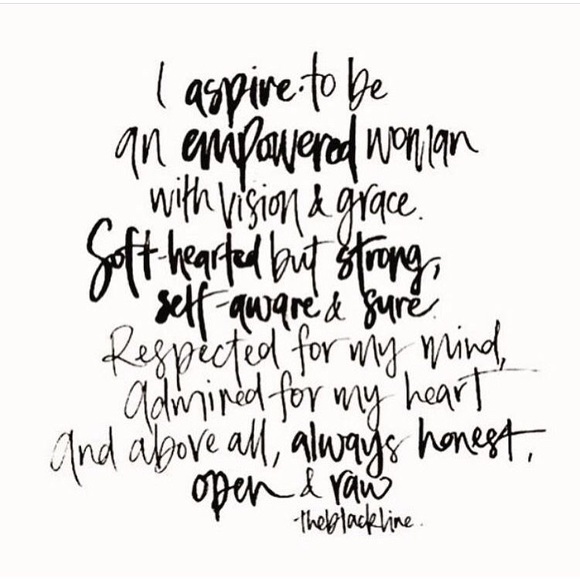 I aspire to be
an empowered woman
with vision & grace.
Soft-hearted but strong,
self-aware & sure.
Respected for my mind,
admired for my heart
and above all, always honest,
open & raw
-theblackline.